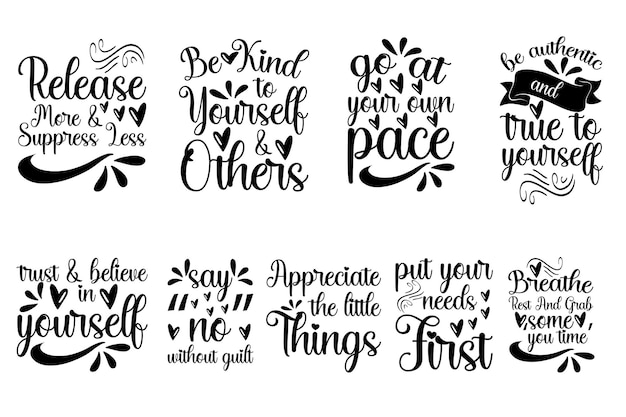 Release
More &
Suppress Less
Be Kind
to
Yourself
&
Others
go at
your own
pace
be authentic
and
true to
yourself
trust & believe
in
yourself
say
"no
without guilt
Appreciate
the little
Things
put your
needs
First
Breathe
Rest And Grab
some
you time